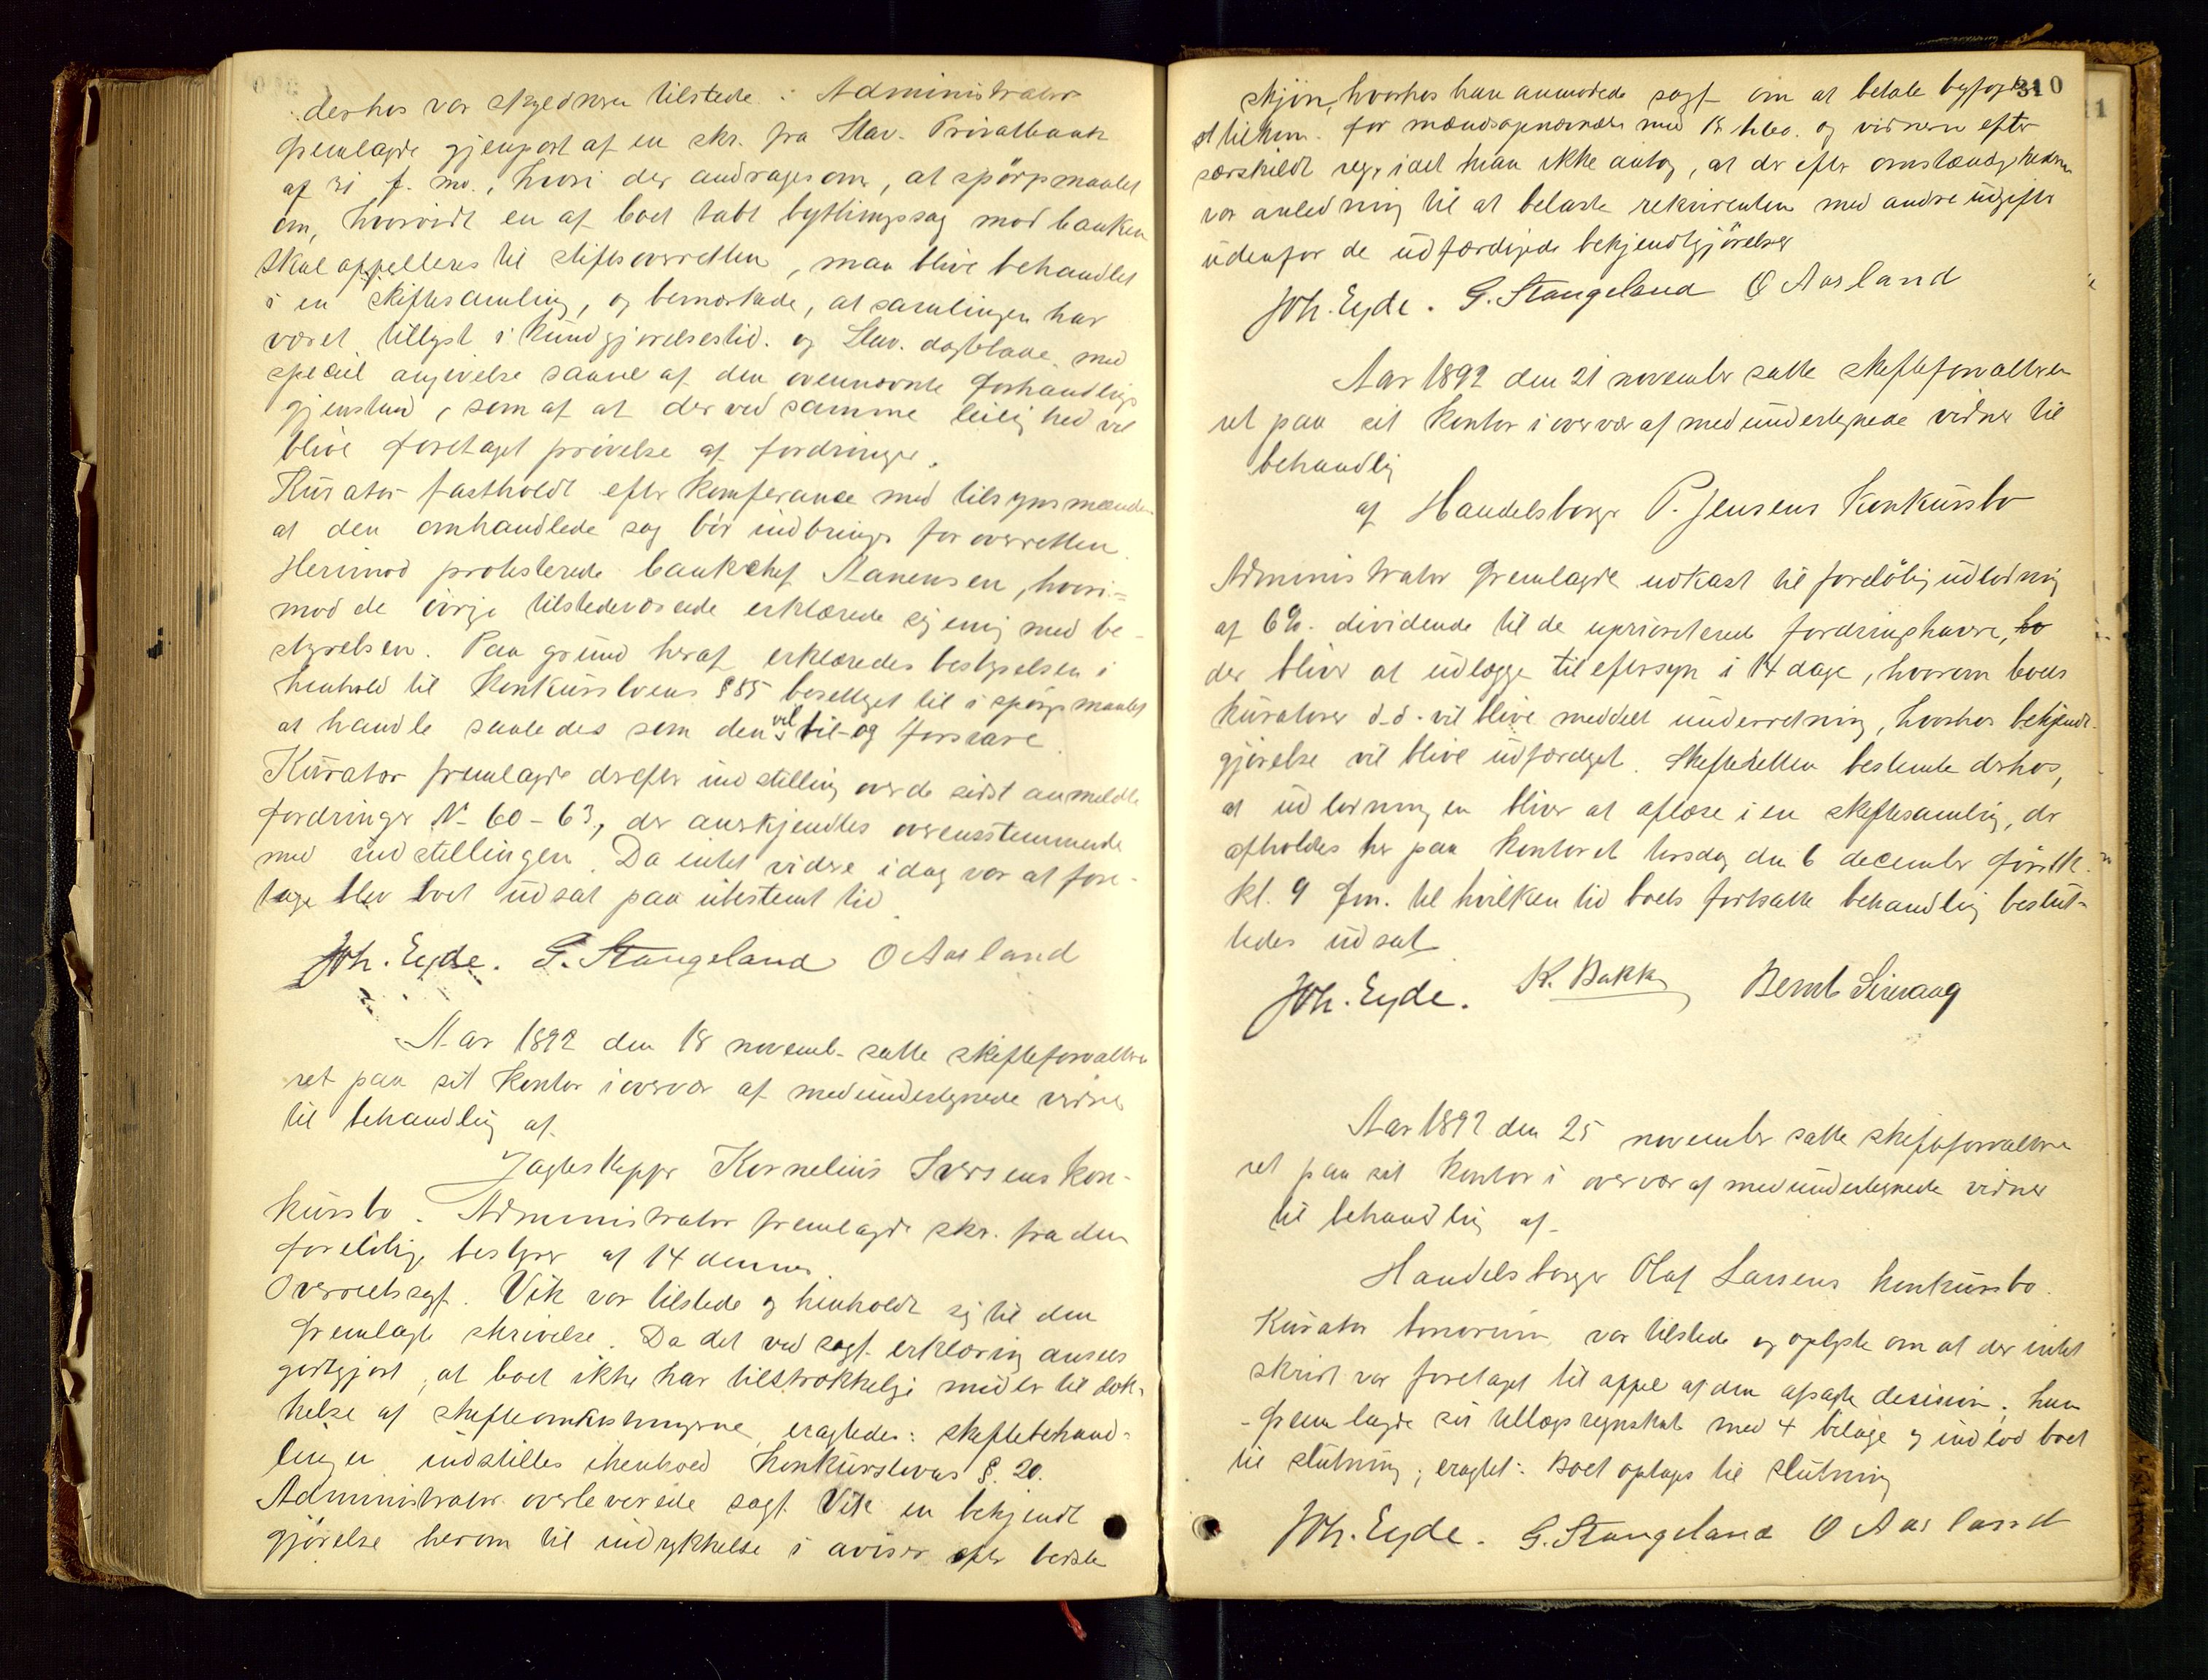 derhos var skyldneren tilstede: Administrator
fremlagde gjenpart af en skr. fra Stav. Privatbank
af 31 f. m., hvori der andrages om, at spörgsmaalet
om, hvorvidt en af boet tabt bytlingssag mod banken
skal appelleres til stiftsoverretten, maa blive behandlet
i en skiftesamling, og bemærkede, at samlingen har
været tillyst i Kundgjørelsestid. og Stav. dagblade med
speciel angivelse saavel af den ovennævnte forhandlings
gjenstand, som af at der ved samme leilighed vil
blive foretaget prövelse af fordringer.
Kurator fastholdt efter konferance med tilsynsmænden
at den omhandlede sag bör indbringes for overretten.
Herimod protesterede bankchef Aanensen, hvori-
mod de övrige tilstedeværende erklærede sig enig med be-
styrelsen. Paa grund heraf erklæredes bestyrelsen i
henhold til Konkurslovens § 85 beföiet til i spörgsmaalet
at handle saaledes som den vil til- og forsvare.
Kurator fremlagde derefter indstilling over de sidst anmeldte
fordringer N- 60-63, der anerkjendtes overensstemmende
med indstillingen. Da intet videre idag var at fore-
tage blev boet udsat paa ubestemt tid.
Joh. Eyde. G. Stangeland O Aasland
Aar 1892 den 18 novemb. satte skifteforvalteren
ret paa sit Kontor i overvær af medundertegnede vidner
til behandling af
Jagteskipper Kornelius Iversens kon-
kursbo. Administrator fremlagde skr. fra den
forelöbige bestyrer af 14 dennes.
Overretssagf. Vik var tilstede og henholdt sig til den
fremlagte skrivelse. Da det ved sagf. erklæring ansees
godtgjort, at boet ikke har tilstrækkelige midler til dæk-
kelse af skifteomkostningerne eragtedes: skiftebehand-
lingen indstilles ihenhold Konkurslovens §. 20.
Administrator overleverede sagf. Vik en bekjendt
gjörelse herom til indrykkelse i aviser efter bedste
310
skjön, hvorhos han anmodede sagf. om at betale byfoged
for mændsopnævnelse med og vidnerne efter
særskildt regn. idet man ikke antog, at der efter omstændighederne
var anledning til at belaste rekvirenten med andre udgifter
udenfor de udfærdigede bekjendtgjörelser
Joh. Eyde. G. Stangeland O Aasland
Aar 1892 den 21 november satte skifteforvalteren
ret paa sit Kontor i overvær af medundertegnede vidner til
behandlig
af Handelsborger P. Jensens Konkursbo
Administrator fremlagde udkast til forelöbig udlodning
af 6%. dividende til de uprioriterede fordringshavere,
der bliver at udlægge til eftersyn i 14 dage, hvorom boets
kuratorer d.d. vil blive meddelt underretning, hvorhos bekjendt-
gjörelse vil blive udfærdiget. Skifteretten bestemte derhos,
at udlodningen bliver at aflæse i en skiftesamling, der
afholdes her paa Kontoret tirsdag den 6 december förstk.
kl. 9 fm. til hvilken tid boets fortsatte behandling beslut-
tedes udsat
Joh. Eyde. K. Bakke Bernt Sirevaag
Aar 1892 den 25 november satte skifteforvalteren
ret paa sit Kontor i overvær af medundertegnede vidner
til behandling af
Handelsborger Olaf Larsens konkursbo.
Kurator bonorum var tilstede og oplyste om at der intet
skridt var foretaget til appel af den afsagte desision; han
fremlagde sit tillægsregnskab med 4 bilage og indlod boet
til slutning; eragtet: Boet optages til slutning
Joh. Eyde. G. Stangeland O Aasland